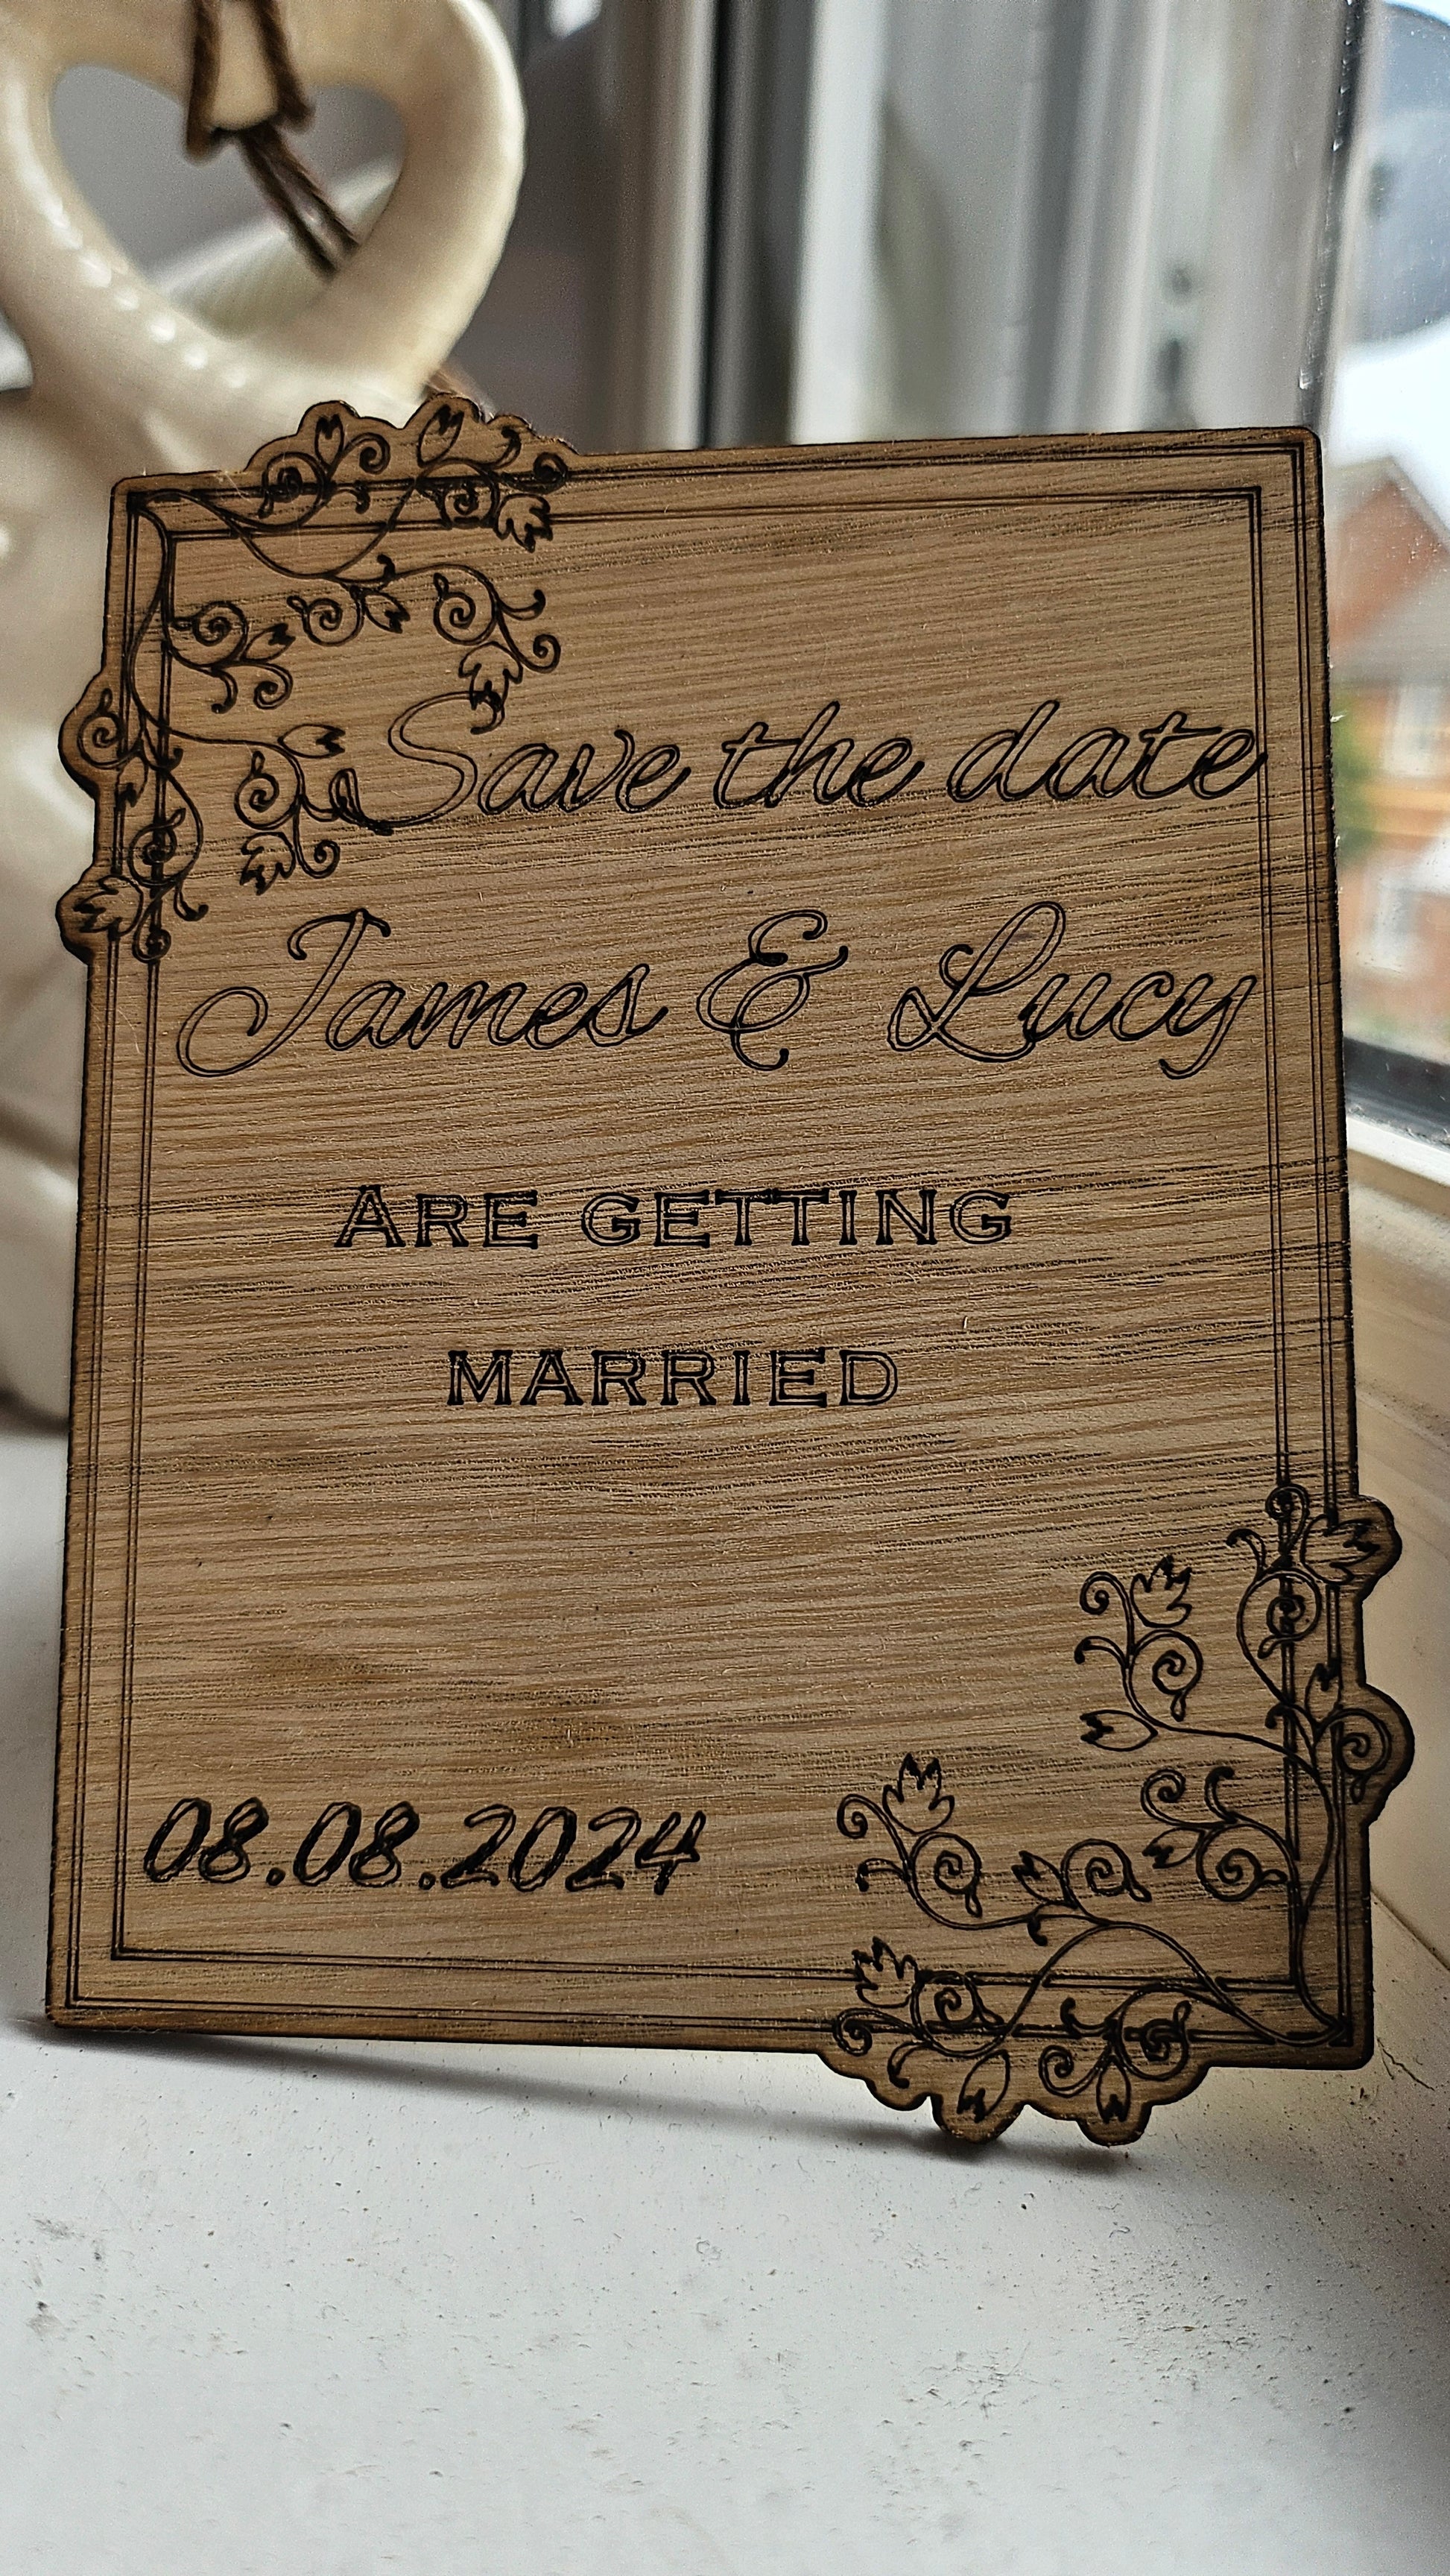 Save the date
James & Lucy
ARE GETTING
MARRIED
08.08.2024